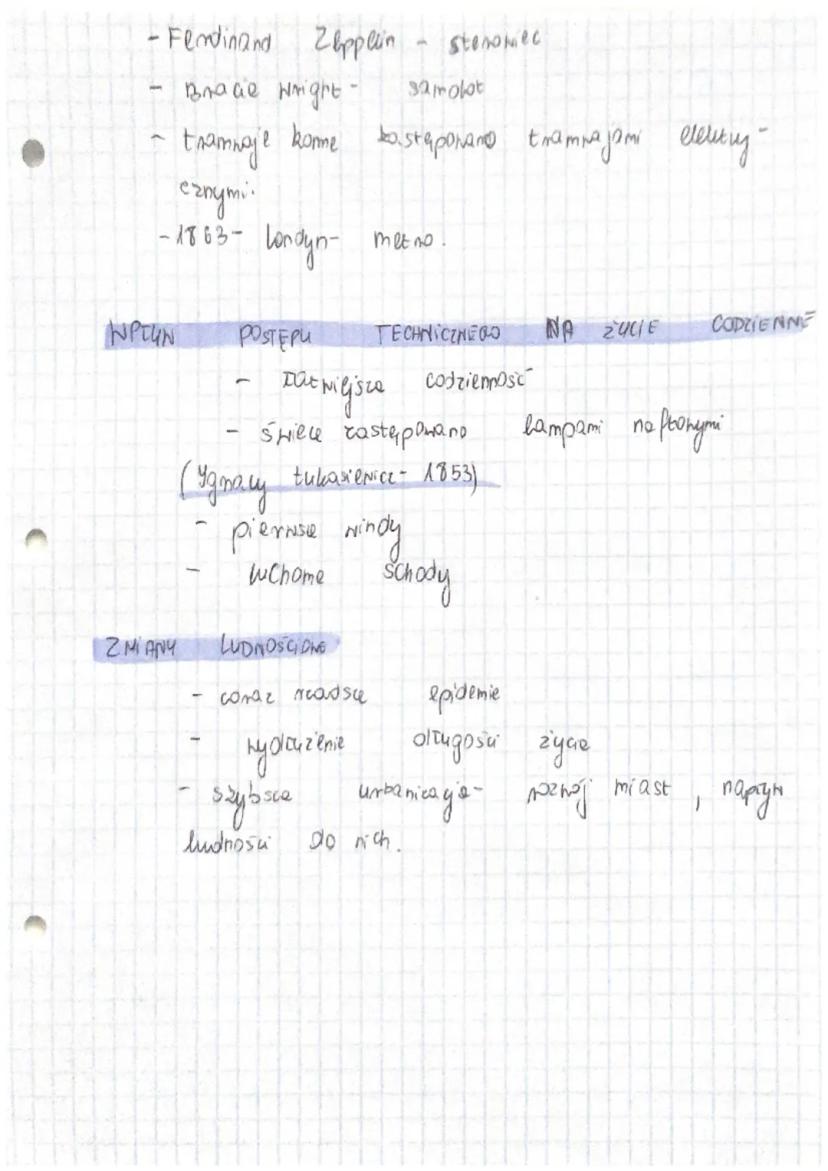 - Ferdinand Zeppelin - sterowiec
- Bracie Wright - samolot
- tramwaje konne zastępowano tramwajami elektry-
cznymi.
- 1863 - Londyn - metro.
WPŁYW POSTĘPU TECHNICZNEGO NA ŻYCIE CODZIENNE
- Łatwiejsza codzienność
- świece zastępowano lampami naftowymi
(Ygnacy Łukasiewicz - 1853)
- pierwsze windy
- ruchome schody
ZMIANY LUDNOŚCIOWE
- coraz rzadsze epidemie
- wydłużenie długości życia
- szybsza urbanizacja - rozwój miast, napływ
ludności do nich.